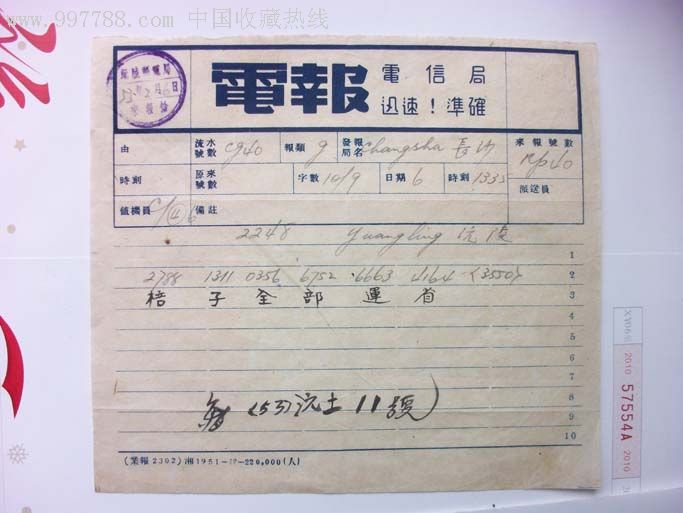 www.997788.com 中国收藏热线
電報
電信局
迅速！準確
由 流水號數 cg40 報類 9 發報局名 Changsha 長沙 來報號數
時刻 原來號數 字數 10/9 日期 6 時刻 1335 派送員
值機員 備註
2248 Yuangling 沅陵
1
2788 1311 0356 6752 6663 4164 (3550) 2
梧子全部運省 3
4
5
6
7
8
(53)沅土11號) 9
10
(業報2302)湘1951-12-220,000(人)
XY066
2010
57554A
2010